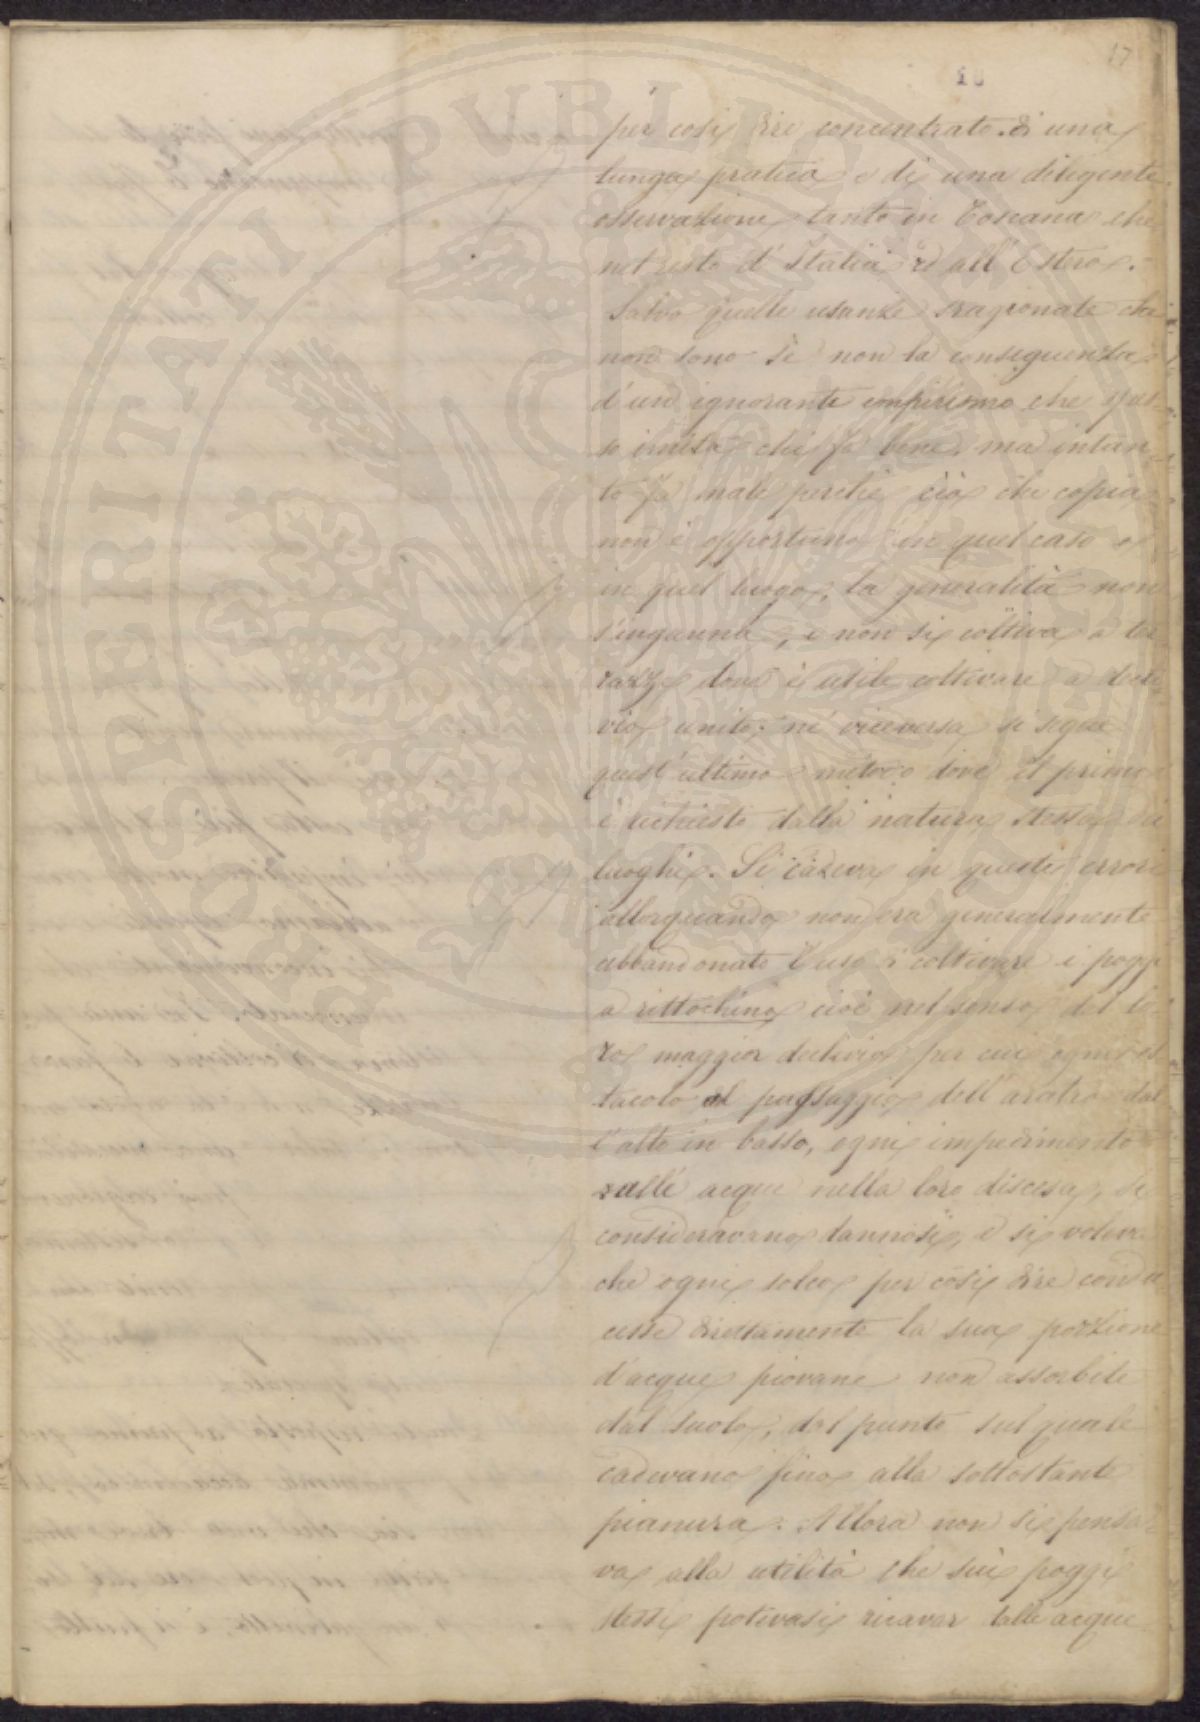 17
10
per così dire concentrato di una
lunga pratica e di una diligente
osservazione tanto in Toscana che
nel resto d'Italia ed all'Estero.
Salvo quelle usanze sragionate che
non sono se non la conseguenza
d'un ignorante empirismo che spes-
so imita chi fa bene, ma intan-
to fa male perchè ciò che copia
non è opportuno in quel caso o
in quel luogo, la generalità non
s'inganna, e non si coltiva a ter
razze dove è utile coltivare a decli-
vio unito; nè viceversa si segue
quest'ultimo metodo dove il primo
è richiesto dalla natura stessa dei
luoghi. Si cadeva in questi errori
allorquando non era generalmente
abbandonato l'uso di coltivare i poggi
a rittochino cioè nel senso del lo-
ro maggior declivio, per cui ogni os
tacolo al passaggio dell'aratro dal
l'alto in basso, ogni impedimento
alle acque nella loro discesa, si
consideravano dannosi, e si voleva
che ogni solco per così dire condu
cesse direttamente la sua porzione
d'acque piovane non assorbite
dal suolo, dal punto sul quale
cadevano fino alla sottostante
pianura. Allora non si pensa-
va alla utilità che sui poggi
stessi potevasi ricavar dalle acque
PROSPERITATI PUBLICAE